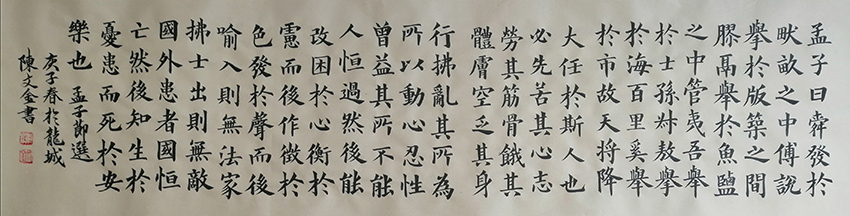 孟子曰舜發於
畎畝之中傅說
舉於版築之間
膠鬲舉於魚鹽
之中管夷吾舉
於士孫叔敖舉
於海百里奚舉
於市故天將降
大任於斯人也
必先苦其心志
勞其筋骨餓其
體膚空乏其身
行拂亂其所為
所以動心忍性
曾益其所不能
人恒過然後能
改困於心衡於
慮而後作徵於
色發於聲而後
喻入則無法家
拂士出則無敵
國外患者國恒
亡然後知生於
憂患而死於安
樂也 孟子節選
庚子春於龍城
陳文金書